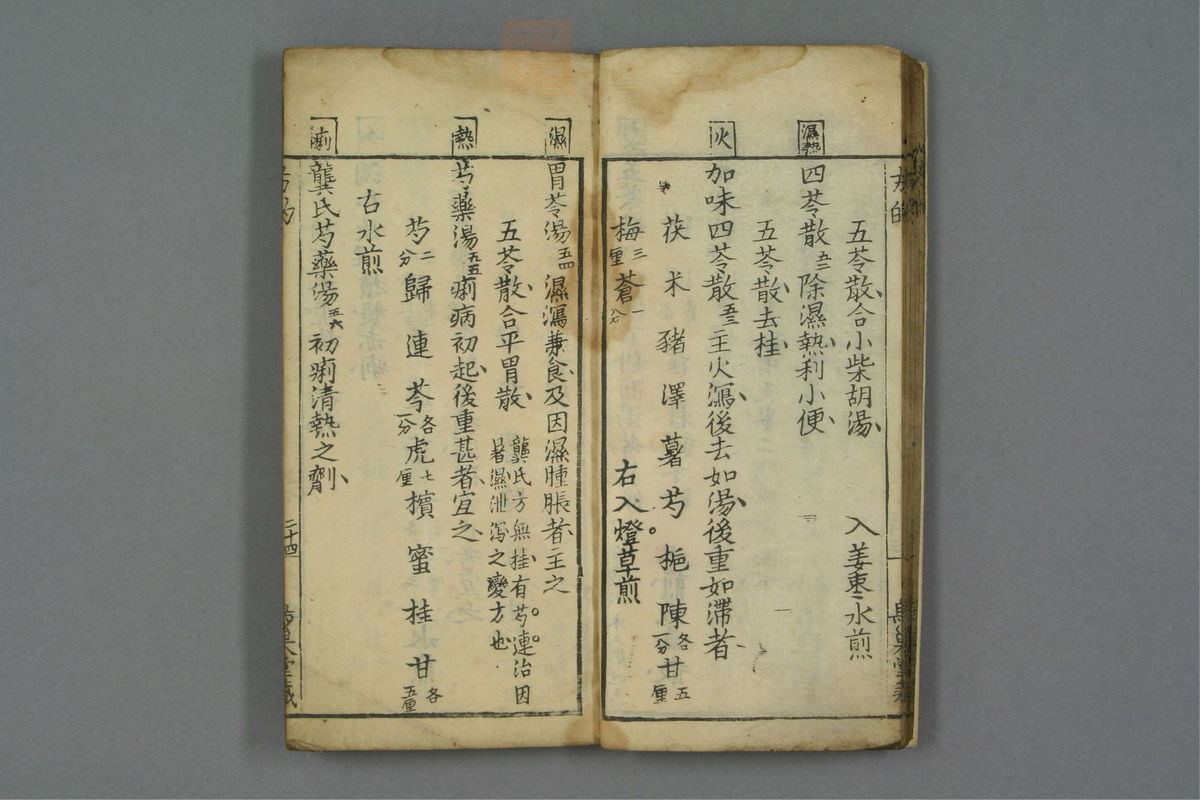 五苓散合小柴胡湯　入姜枣水煎
濕熱
四苓散五二除濕熱利小便
五苓散去桂
火
加味四苓散五三主火瀉後去如湯後重如滞者
茯 术 豬 澤 薯 芍 梔 陳各一分 甘五厘
梅三厘 蒼一分 右入燈草煎
濕
胃苓湯五四濕瀉兼食及因濕腫脹者主之
五苓散合平胃散 龔氏方無桂有芍連治因暑濕泄瀉之變方也
熱
芍藥湯五五痢病初起後重甚者宜之
芍二分 歸 連 芩各一分 虎七厘 檳 蜜 桂 甘各五厘
右水煎
痢
龔氏芍藥湯五六初痢清熱之劑
二十四